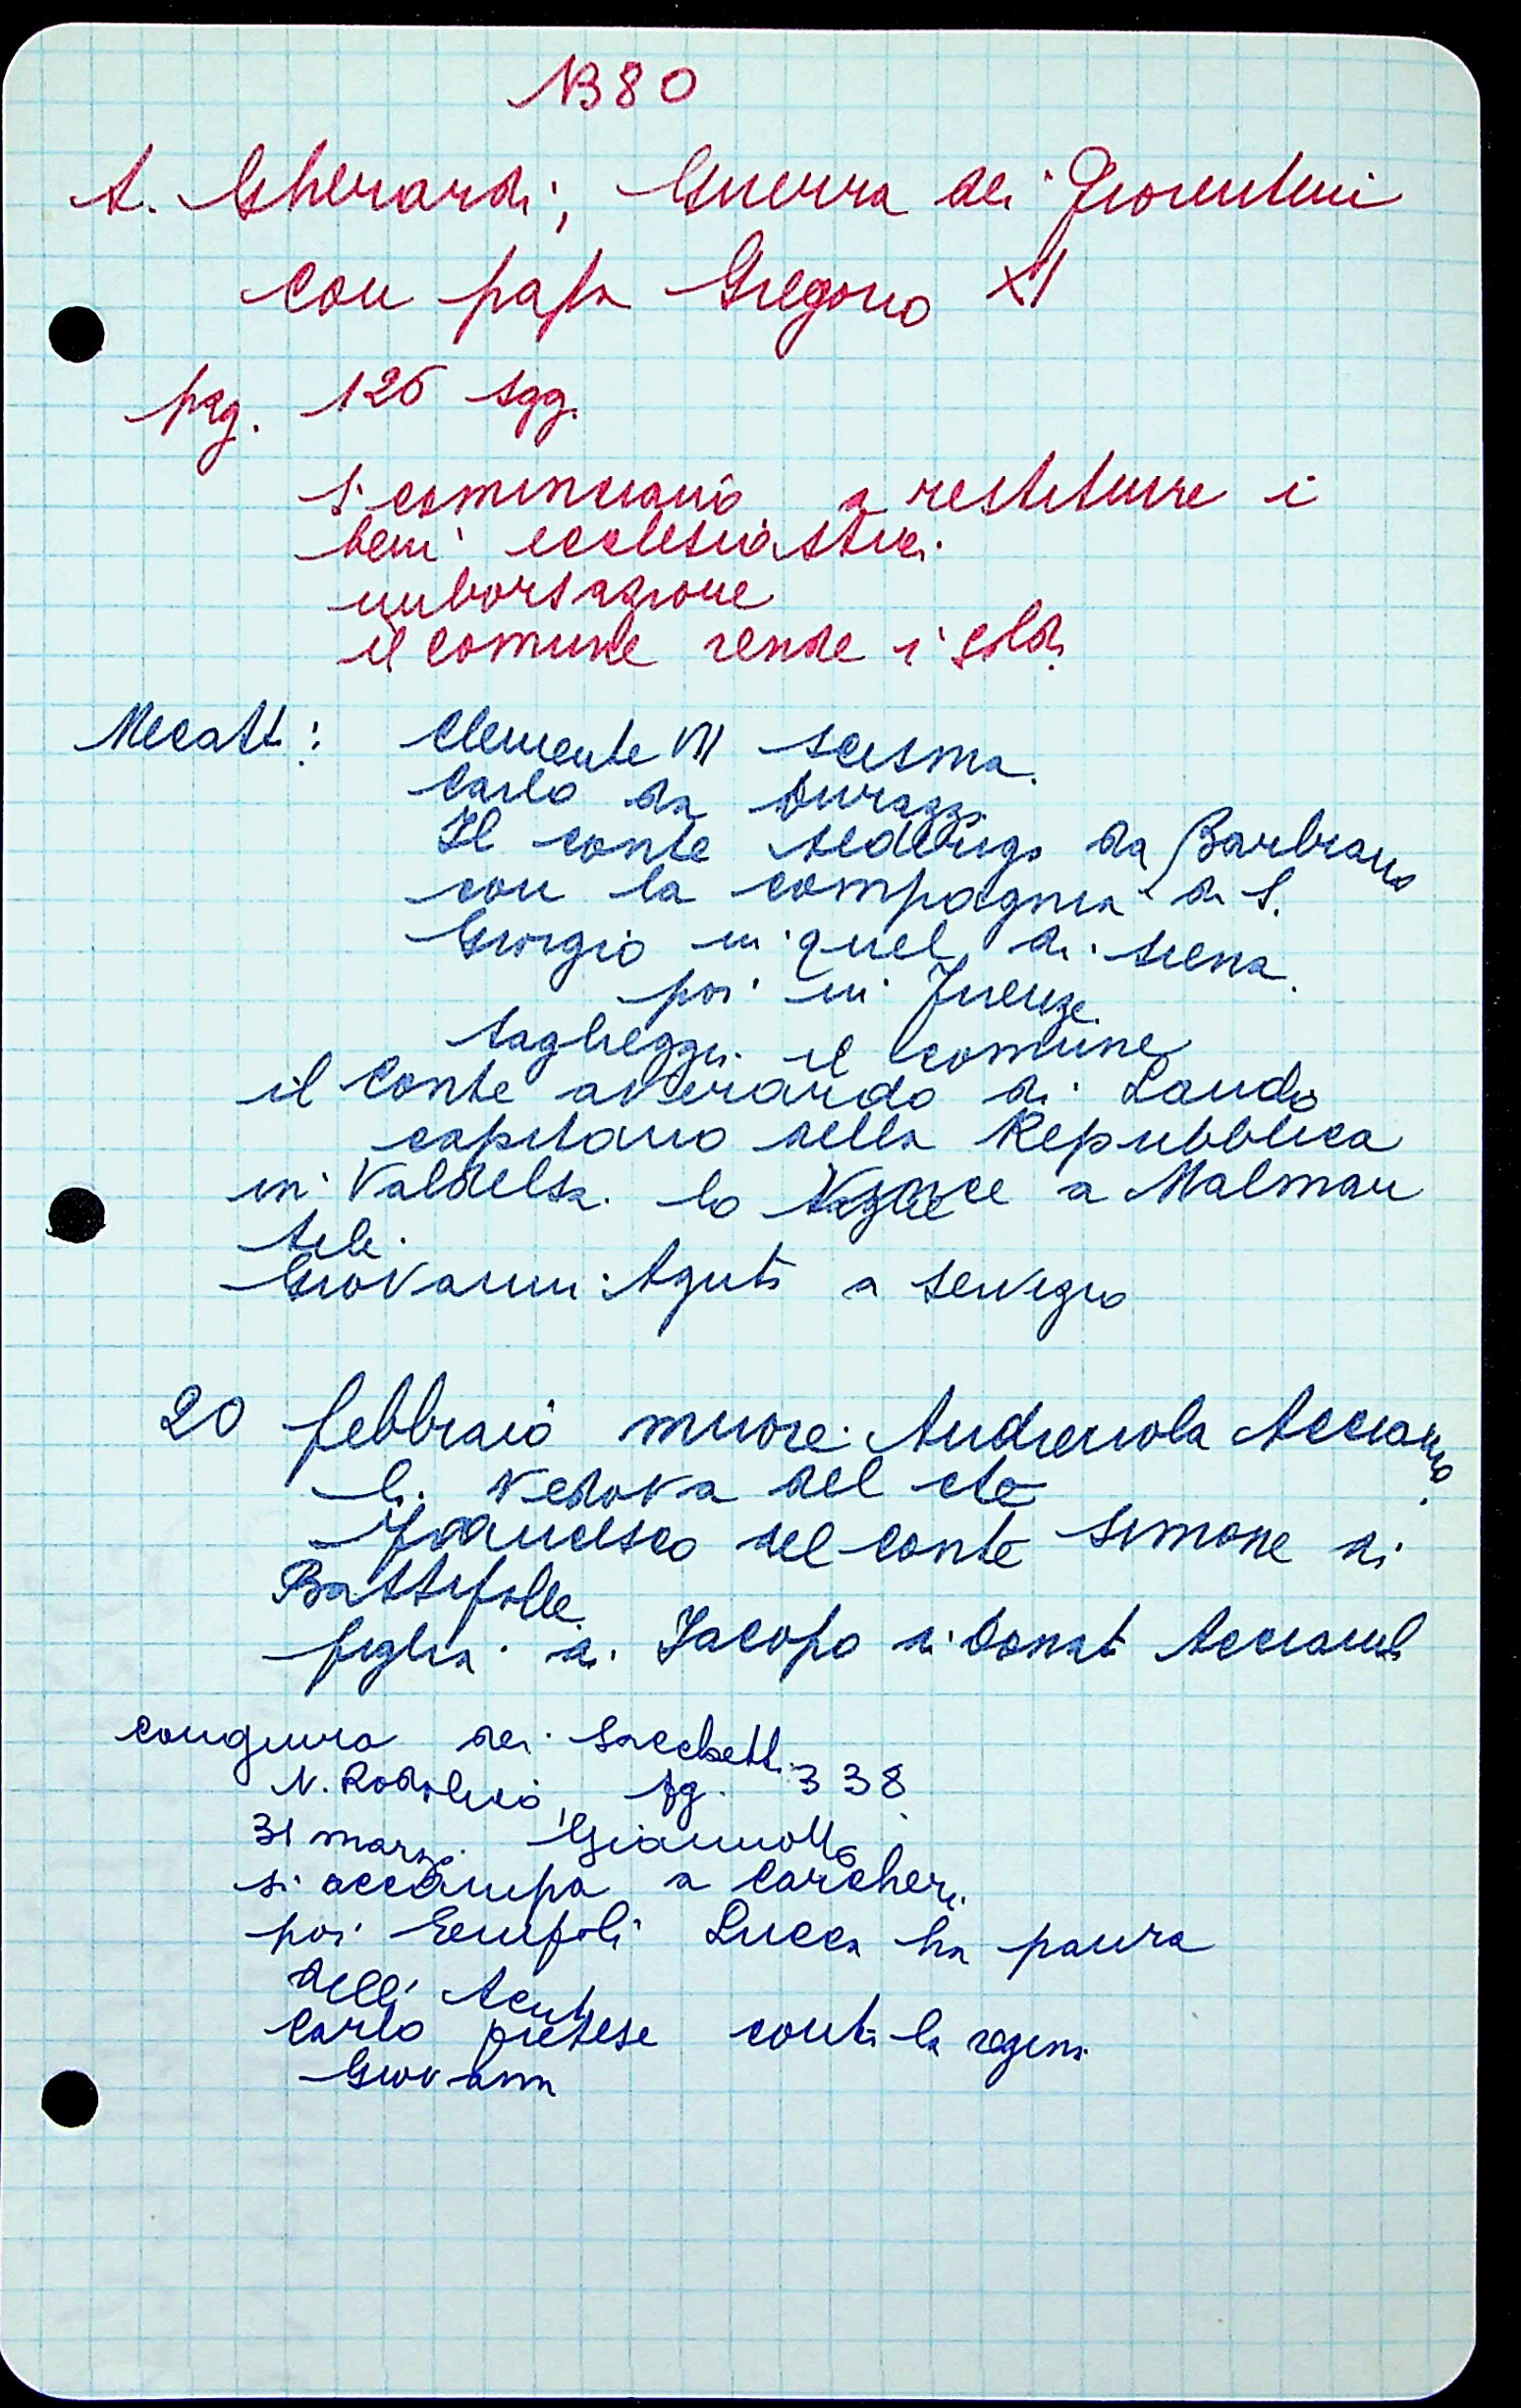 1380
A. Gherardi, Guerra dei Fiorentini
con papa Gregorio XI
pag. 126 sgg.
si cominciano a restituire i
beni ecclesiastici
imborsazione
il comune rende i soldi
Mecatti: Clemente VII scisma.
Carlo da Durazzo
Il conte Alderigo da Barbiano
con la compagnia di S.
Giorgio in quel di Siena.
poi in Firenze.
taglieggia il comune
il Conte Averardo di Lando
capitano della Repubblica
in Valdelsa. lo vince a Malman
tile.
Giovanni Aguto a servigio
20 febbraio muore Andreuola Acciaiuo
li vedova del cte
Francesco del conte Simone di
Battifolle
figlia di Jacopo di Donato Acciaiuoli
congiura dei Sacchetti
N. Rodolico, pg. 338
31 marzo. Giannotto
si accampa a Carcheri
poi Empoli Lucca ha paura
dell'Acuto
Carlo pretese contro la regina
Giovanna